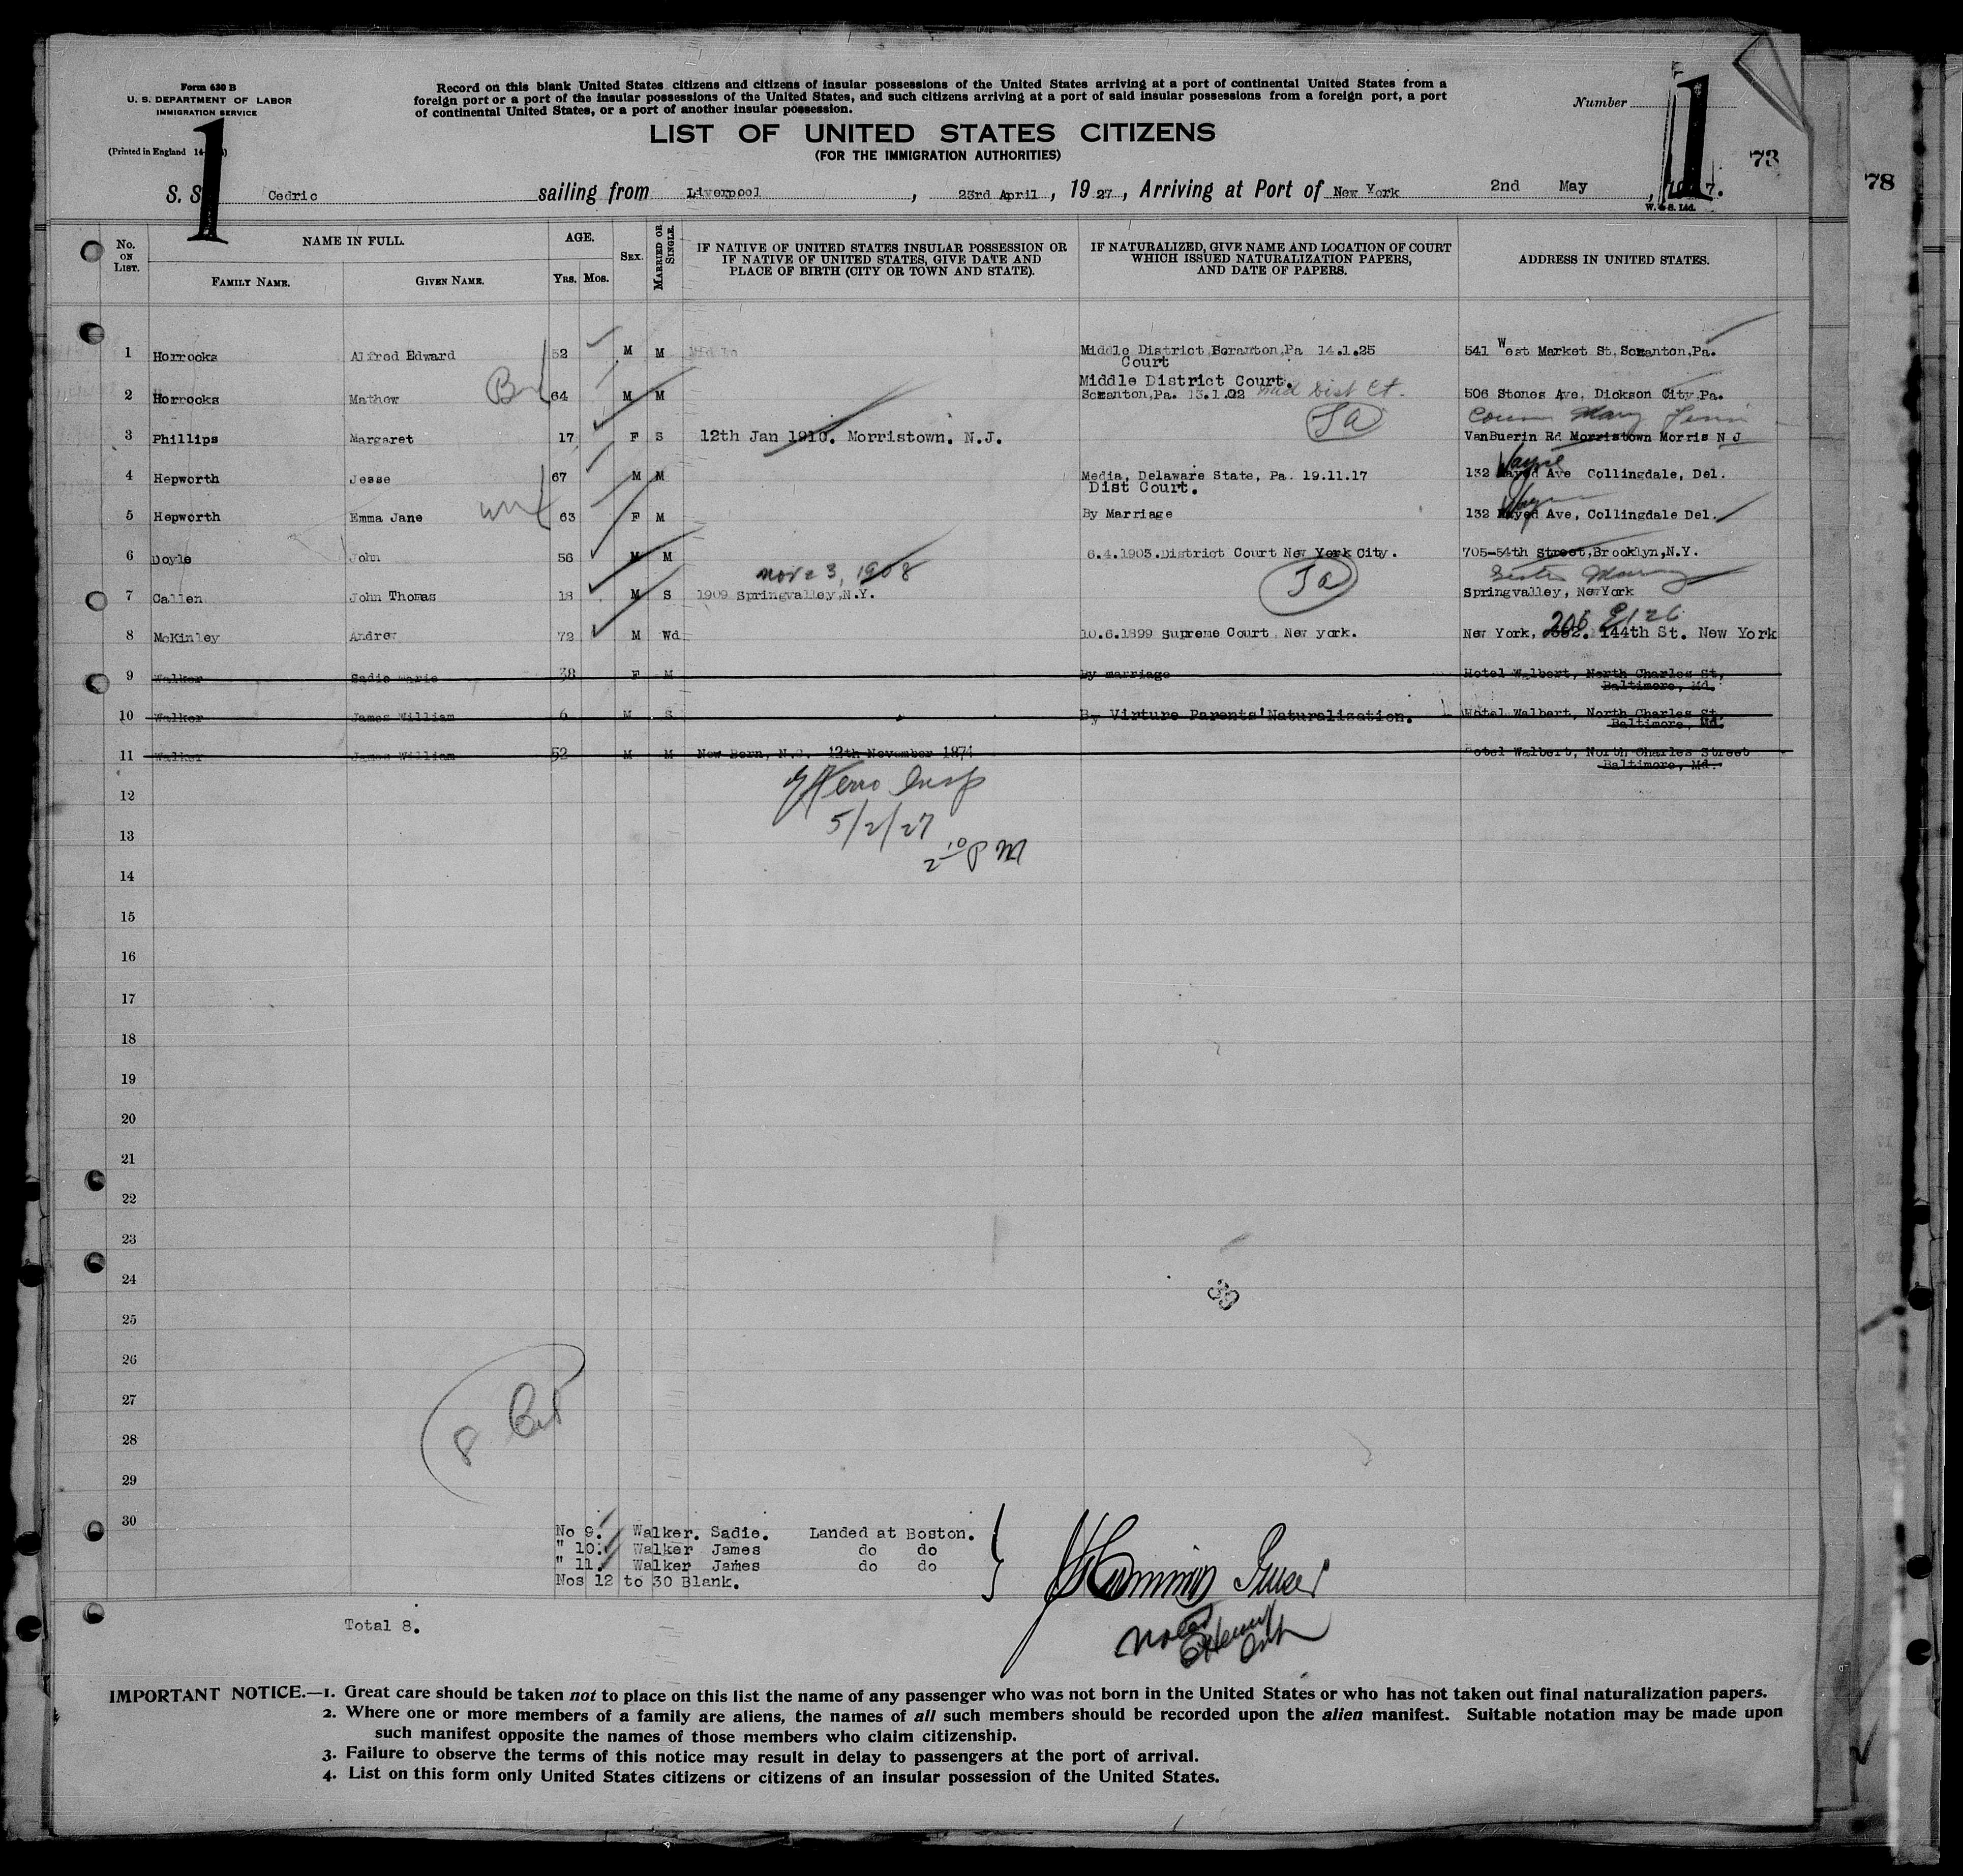 Form 630 B
U. S. DEPARTMENT OF LABOR
IMMIGRATION SERVICE
(Printed in England
Record on this blank United States citizens and citizens of insular possessions of the United States arriving at a port of continental United States from a
foreign port or a port of the insular possessions of the United States, and such citizens arriving at a port of said insular possessions from a foreign port, a port
of continental United States, or a port of another insular possession.
Number
1
1
73
78
LIST OF UNITED STATES CITIZENS
(FOR THE IMMIGRATION AUTHORITIES)
S. S. Cedric sailing from Liverpool, 23rd April, 1927, Arriving at Port of New York 2nd May, 1927.
W. & S. Ltd.
No. ON LIST. NAME IN FULL. AGE. SEX. MARRIED OR SINGLE. IF NATIVE OF UNITED STATES INSULAR POSSESSION OR IF NATIVE OF UNITED STATES, GIVE DATE AND PLACE OF BIRTH (CITY OR TOWN AND STATE). IF NATURALIZED, GIVE NAME AND LOCATION OF COURT WHICH ISSUED NATURALIZATION PAPERS, AND DATE OF PAPERS. ADDRESS IN UNITED STATES.
FAMILY NAME. GIVEN NAME. YRS. MOS.
1 Horrocks Alfred Edward 52 M M Middle District Scranton,Pa 14.1.25 541 West Market St, Scranton,Pa.
Court
Middle District Court.
2 Horrocks Mathew 64 M M Scranton,Pa. 13.1.02 Mid Dist Ct. 506 Stones Ave, Dickson City Pa.
Cousin Mary
3 Phillips Margaret 17 F S 12th Jan 1910. Morristown. N.J. VanBuerin Rd Morristown Morris N J
Wayne
4 Hepworth Jesse 67 M M Media, Delaware State, Pa. 19.11.17 132 Ave Collingdale, Del.
Dist Court.
5 Hepworth Emma Jane 63 F M By Marriage 132 Ave, Collingdale Del.
6 Doyle John 56 M M 6.4.1903.District Court New York City. 705-54th Street,Brooklyn,N.Y.
Nov 23, 1908 Sister Mary
7 Callen John Thomas 18 M S 1909 Springvalley,N.Y. Springvalley, NewYork
206 E 126
8 McKinley Andrew 72 M Wd 10.6.1899 Supreme Court New york. New York, 144th St. New York
9 Walker Sadie Marie 38 F M By marriage Hotel Walbert, North Charles St,
Baltimore, Md.
10 Walker James William 6 M S By Virture Parents'Naturalization. Hotel Walbert, North Charles St,
Baltimore, Md.
11 Walker James William 52 M M New Bern, N.C. 12th November 1874 Hotel Walbert, North Charles Street
Baltimore, Md.
12
Insp
13
5/2/27
2 10 PM
14
15
16
17
18
19
20
21
22
23
24
39
25
26
27
8
28
29
30
No 9. Walker. Sadie. Landed at Boston.
" 10. Walker James do do
" 11. Walker James do do
Nos 12 to 30 Blank.
Total 8.
Noted
IMPORTANT NOTICE.—1. Great care should be taken not to place on this list the name of any passenger who was not born in the United States or who has not taken out final naturalization papers.
2. Where one or more members of a family are aliens, the names of all such members should be recorded upon the alien manifest. Suitable notation may be made upon
such manifest opposite the names of those members who claim citizenship.
3. Failure to observe the terms of this notice may result in delay to passengers at the port of arrival.
4. List on this form only United States citizens or citizens of an insular possession of the United States.